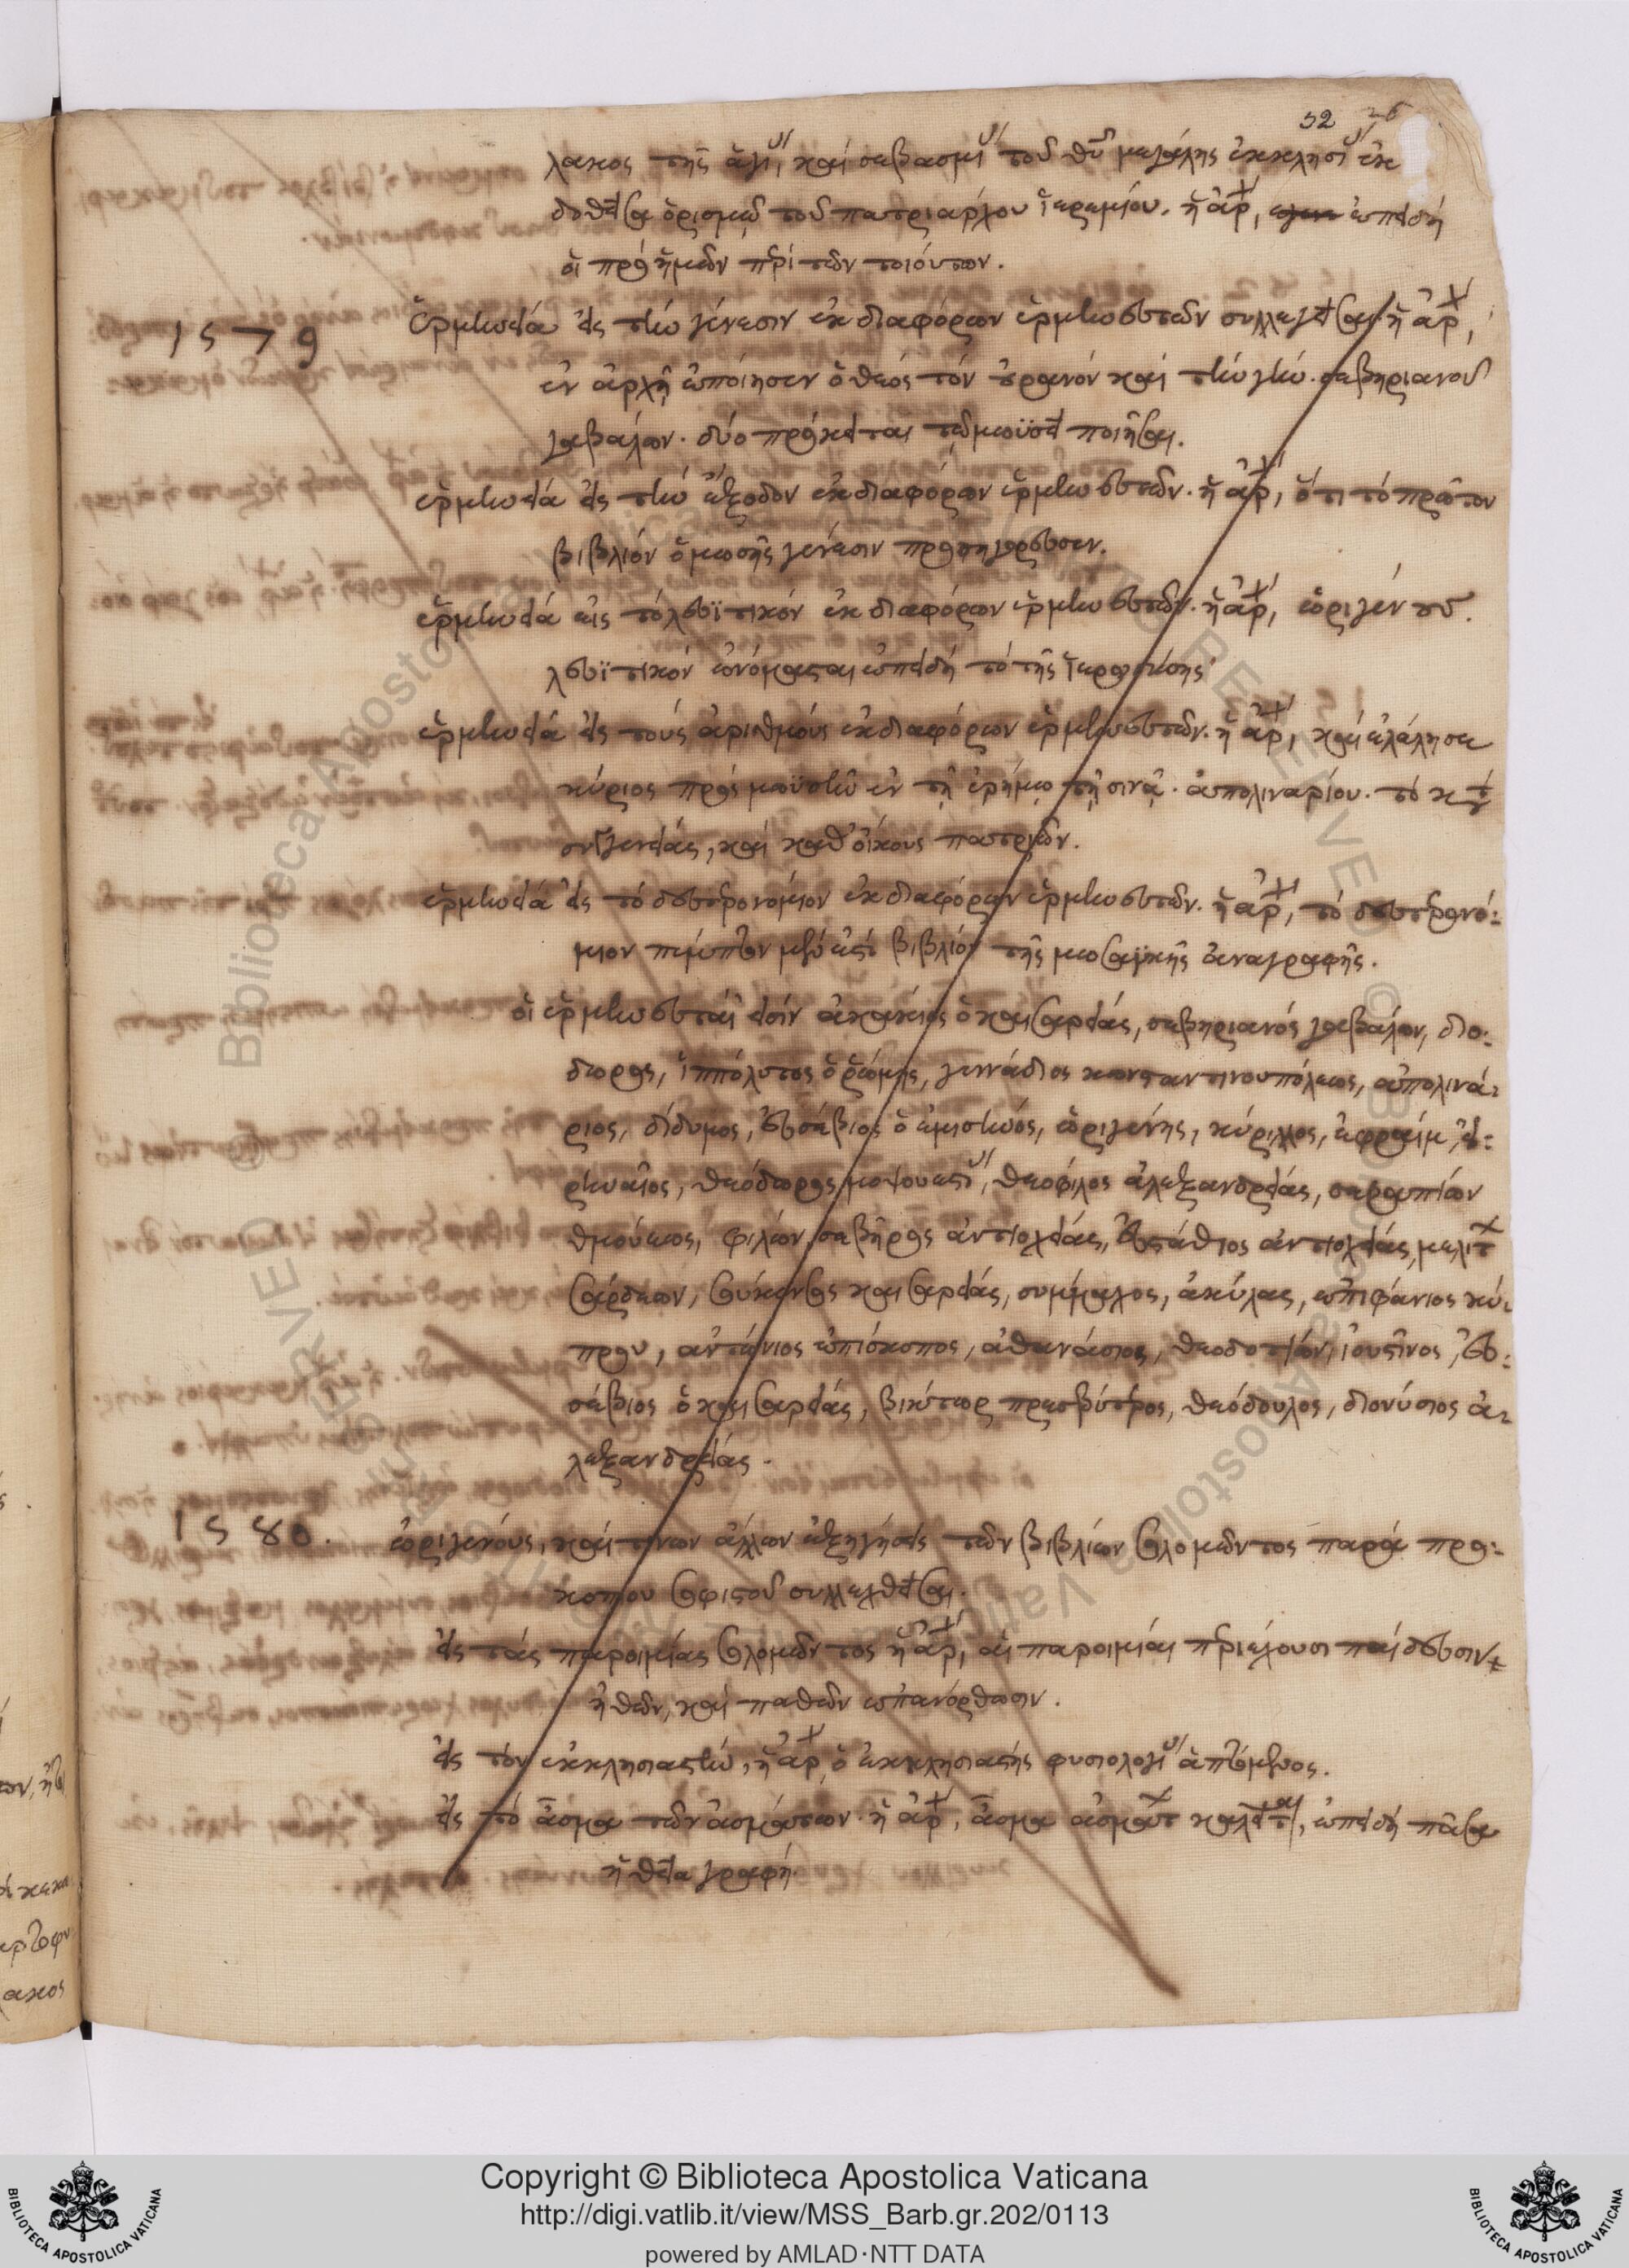 52 26
λακος τῆς ἁγί καὶ σεβασμί τοῦ θῦ μεγάλης ἐκκλησί ἐκ
δοθεῖσα ὁρισμῷ τοῦ πατριάρχου ἱερεμίου. ἡ ἀρχ, ἐπειδή
οἱ πρὸ ἡμῶν περὶ τῶν τοιούτων.
1579 ἑρμηνεία εἰς τὴν γένεσιν ἐκ διαφόρων ἑρμηνευτῶν συλλεγεῖσα ἡ ἀρχ,
ἐν ἀρχῇ ἐποίησεν ὁ θεός τόν οὐρανόν καί τὴν γῆν. σεβηριανοῦ
γαβάλων. δύο πρόκειται τῷ μωϋσεῖ ποιῆσαι.
ἑρμηνεία εἰς τὴν ἔξοδον ἐκ διαφόρων ἑρμηνευτῶν. ἡ ἀρχ, ὅτι τό πρῶτον
βιβλιόν ὁ μωσῆς γένεσιν προσηγόρευσεν.
ἑρμηνεία εἰς τό λευϊτικόν ἐκ διαφόρων ἑρμηνευτῶν. ἡ ἀρχ, ὠριγένους.
λευϊτικόν ὠνόμασται ἐπειδή τό τῆς ἱερωσύνης
ἑρμηνεία εἰς τούς ἀριθμούς ἐκ διαφόρων ἑρμηνευτῶν. ἡ ἀρχ, καί ἐλάλησε
κύριος πρός μωϋσῆν ἐν τῇ ἐρήμῳ τῇ σινᾷ. ἀπολιναρίου. τό κατὰ
συγγενείας, καί κατ' οἴκους πατριῶν.
ἑρμηνεία εἰς τό δευτερονόμιον ἐκ διαφόρων ἑρμηνευτῶν. ἡ ἀρχ, τό δευτερονό:
μιον πέμπτον μέν ἐστι βιβλίον τῆς μωσαϊκῆς ἀναγραφῆς.
οἱ ἑρμηνευταί εἰσίν ἀκάκιος ὁ καισαρείας, σεβηριανός γαβάλων, διο:
δωρος, ἱππόλυτος ὁ ῥώμης, γεννάδιος κωνσταντινουπόλεως, ἀπολινά:
ριος, δίδυμος, εὐσέβιος ὁ ἐμισηνός, ὠριγένης, κύριλλος, ἐφραίμ, εἰ:
ρηναῖος, θεόδωρος μοψουεστί, θεόφιλος ἀλεξανδρείας, σαραπίων
θμούεως, φίλων, σεβῆρος ἀντιοχείας, εὐστάθιος ἀντιοχείας, μελίτ
σάρδεων, σούκενσος καισαρείας, σύμμαχος, ἀκύλας, ἐπιφάνιος κύ:
πρου, ἀντώνιος ἐπίσκοπος, ἀθανάσιος, θεοδοτίων, ἰουστῖνος, εὐ:
σέβιος ὁ καισαρείας, βικύτωρ πρεσβύτερος, θεόδουλος, διονύσιος ἀ:
λεξανδρείας.
1580. ὠριγένους, καί τινων ἄλλων ἐξηγήσεις τῶν βιβλίων σολομῶντος παρά προ:
κοπίου σοφιστοῦ συλλεχθεῖσαι.
εἰς τάς παροιμίας σολομῶντος ἡ ἀρχ, αἱ παροιμίαι περιέχουσι παίδευσιν
ἠθῶν, καί παθῶν ἐπανόρθωσιν.
εἰς τόν ἐκκλησιαστήν, ἡ ἀρχ, ὁ ἐκκλησιαστής φυσιολογί ἁπτόμενος.
εἰς τό ᾆσμα τῶν ᾀσμάτων. ἡ ἀρχ, ᾆσμα ᾀσμάτ καλεῖται, ἐπειδή πᾶσα
ἡ θεία γραφή.
Copyright © Biblioteca Apostolica Vaticana
http://digi.vatlib.it/view/MSS_Barb.gr.202/0113
powered by AMLAD·NTT DATA